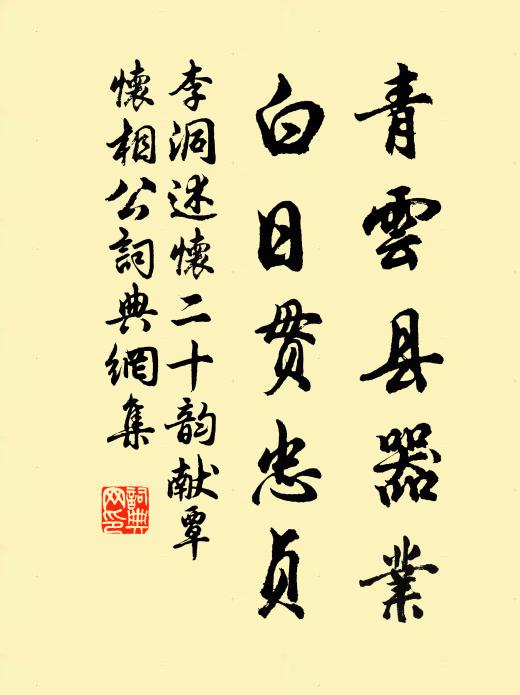 青雲县器業
白日贯忠贞
李洞述懷二十韵献覃
懷相公詞典網集
詞典网印